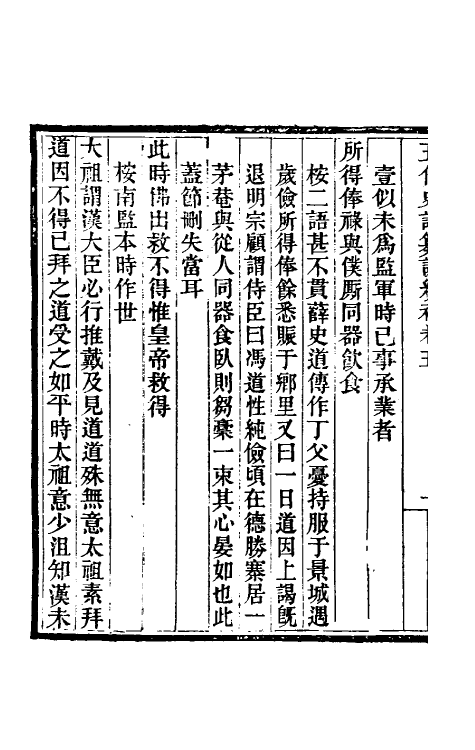 壹似未爲監軍時已事承業者
所得俸祿與僕厮同器飲食
按二語甚不貫薛史道傳作丁父憂持服于景城遇
歲儉所得俸餘悉賑于鄉里又曰一日道因上謁旣
退明宗顧謂侍臣曰馮道性純儉頃在德勝寨居一
茅菴與從人同器食臥則芻藁一束其心晏如也此
蓋節刪失當耳
此時佛出救不得惟皇帝救得
按南監本時作世
太祖謂漢大臣必行推戴及見道道殊無意太祖素拜
道因不得已拜之道受之如平時太祖意少沮知漢未